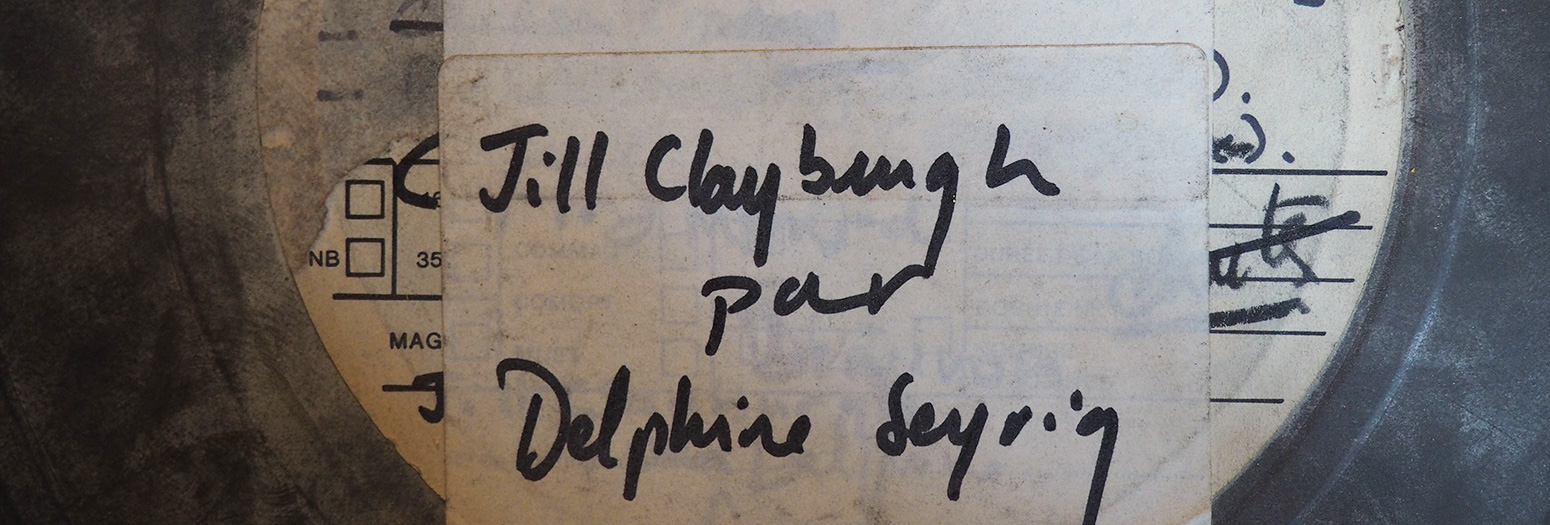 Jill Clayburgh
par
Delphine Seyrig
NB
35
MAG